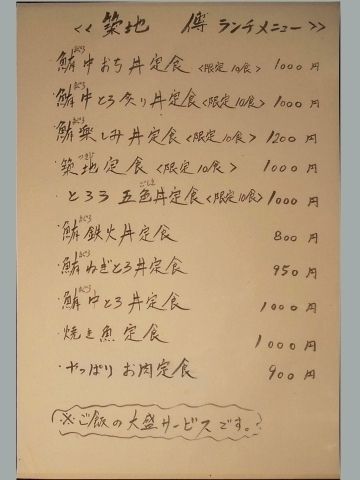 <<築地 傳 ランチメニュー>>
・鮪中おち丼定食 <限定10食> 1000円
・鮪中とろ炙り丼定食 <限定10食> 1000円
・鮪楽しみ丼定食 <限定10食> 1200円
・築地定食 <限定10食> 1000円
・とろろ五色丼定食 <限定10食> 1000円
・鮪鉄火丼定食 800円
・鮪ねぎとろ丼定食 950円
・鮪中とろ丼定食 1000円
・焼き魚定食 1000円
・やっぱりお肉定食 900円
※ご飯の大盛サービスです。